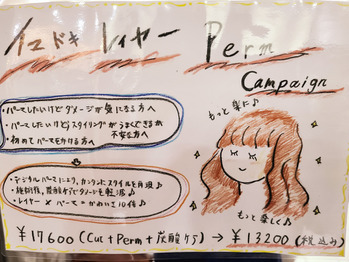 イマドキ レイヤー Perm
Campaign
・パーマしたいけどダメージが気になる方へ
・パーマしたいけどスタイリングがうまくできるか
不安な方へ
・初めてパーマをかける方へ
・デジタルパーマにより、カンタンにスタイルを再現♪
・施術後、炭酸ケアでダメージを軽減♪
・レイヤー × パーマ = かわいさ10倍♪
もっと楽に♪
もっと楽しく♪
¥17600 (Cut+Perm+炭酸ケア) → ¥13200 (税込み)